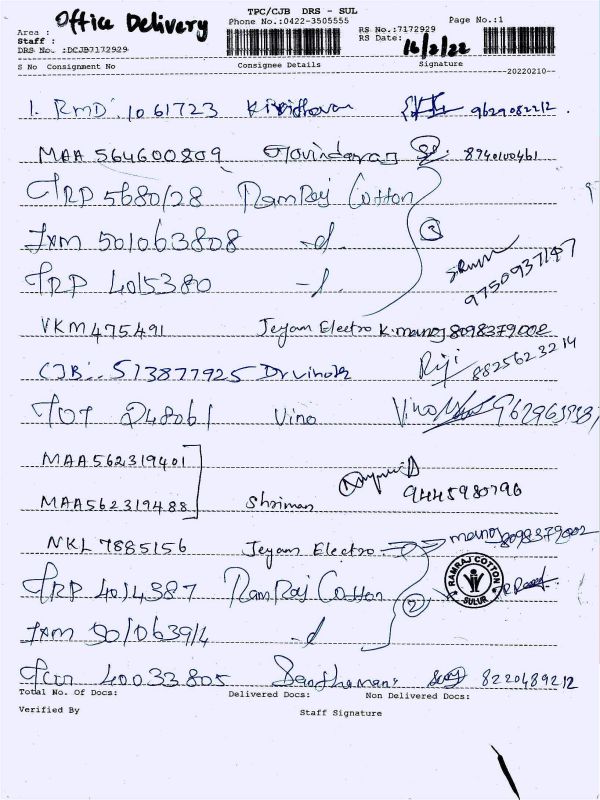 Office Delivery
TPC/CJB DRS - SUL
Phone No.:0422-3505555
Page No.:1
Area :
Staff :
DRS No. :DCJB7172929
RS No.:7172929
RS Date: 16/2/22
S No Consignment No Consignee Details Signature
20220210
1. RMD 1061723 9629082212
MAA 564600809 Govindaraj 8940100461
TRP 5680128 RamRaj Cotton
TXM 501063808 -d. 3
TRP 4015380 -d.
9750937147
VKM 475491 Jeyam Electro K.manoj 8098379002
CJB 513877925 Dr vinoth Riji 8825623214
TOT 248061 Vino Vino
MAA562319401
MAA562319488 Shriman 9445980796
NKL 7885156 Jeyam Electro manoj 8098379002
TRP 4014387 RamRaj Cotton 2 RAMRAJ COTTON SULUR
TXM 501063914 -d
40033805 8220489212
Total No. Of Docs: Delivered Docs: Non Delivered Docs:
Verified By Staff Signature